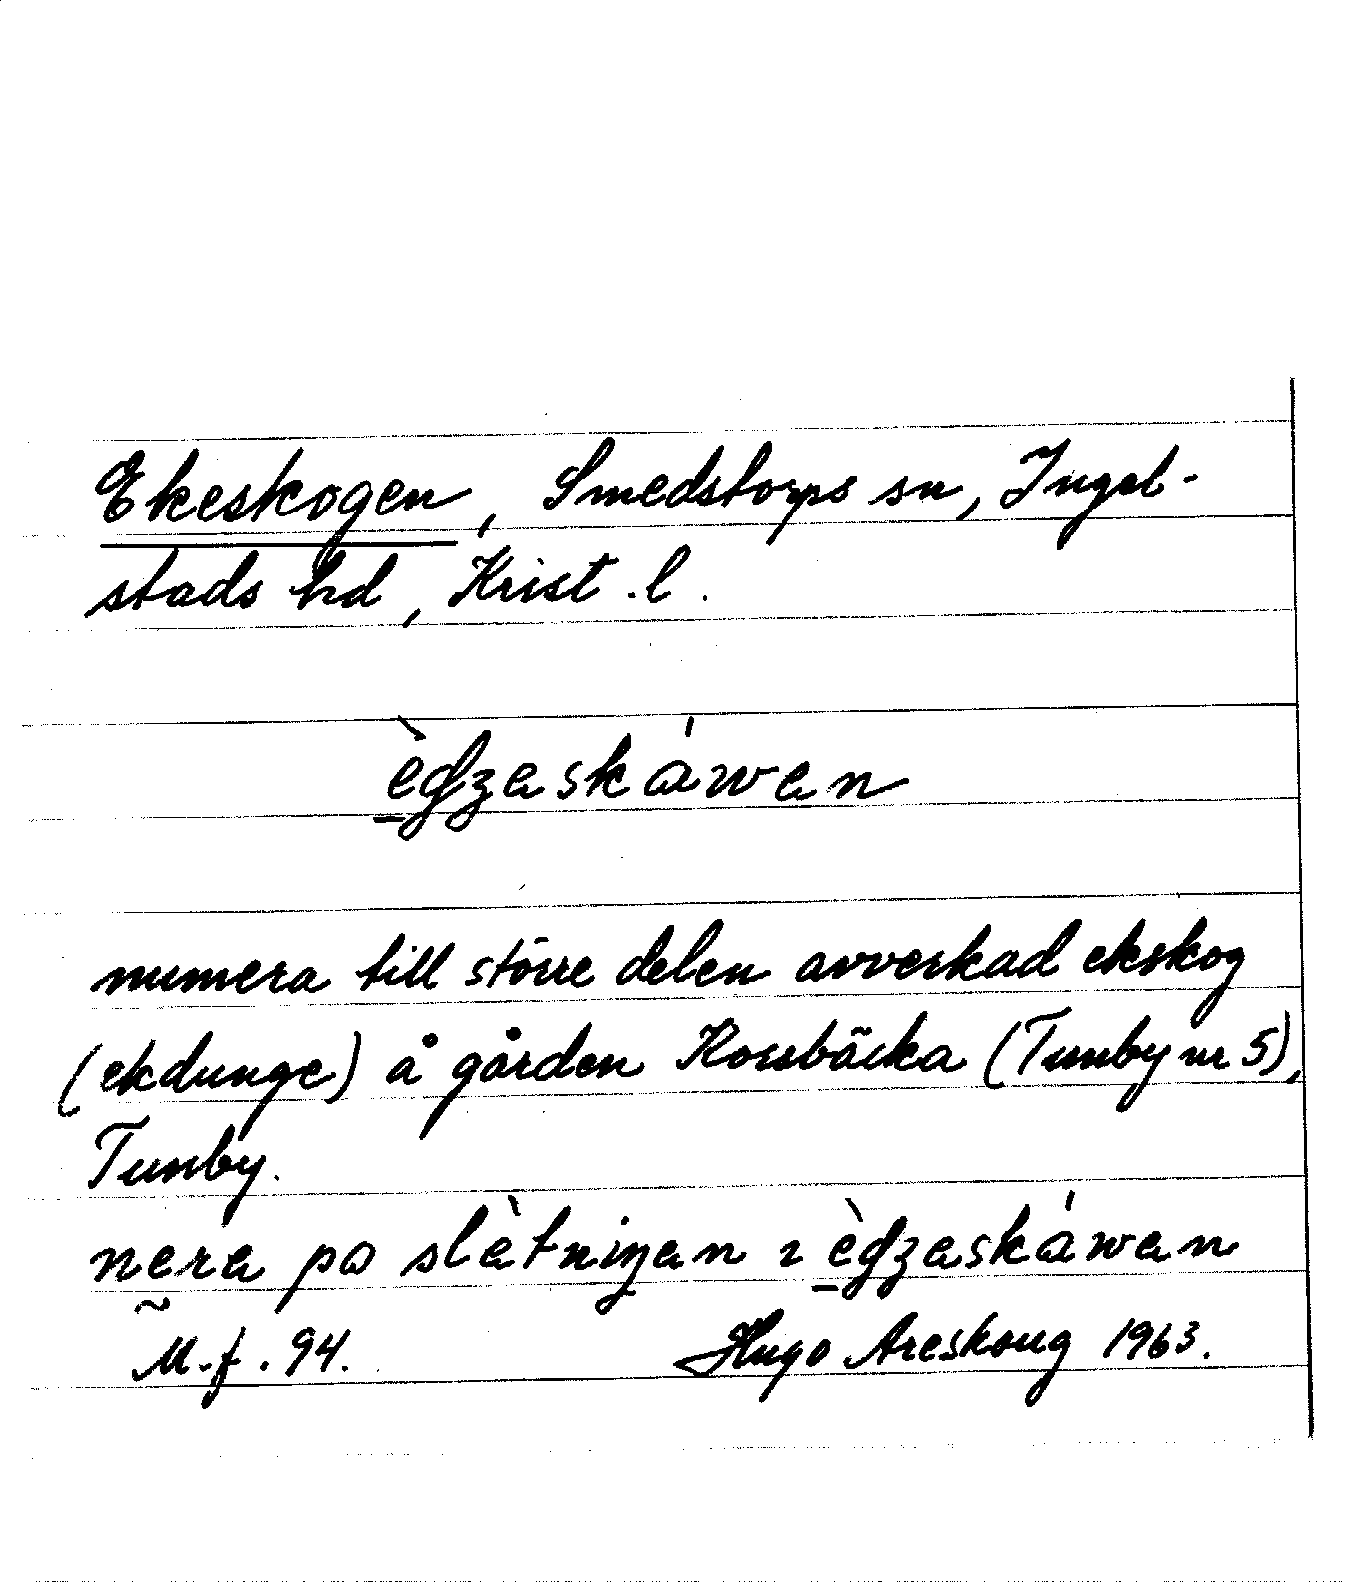 Ekeskogen, Smedstorps sn, Ingel-
stads hd, Krist. l.
èɡʒaskáwan
numera till större delen avverkad ekskog
(ekdunge) å gården Korsbäcka (Tunby nr 5),
Tunby.
nera pa slètniŋan ı èɡʒaskáwan
M. f. 94. Hugo Areskoug 1963.